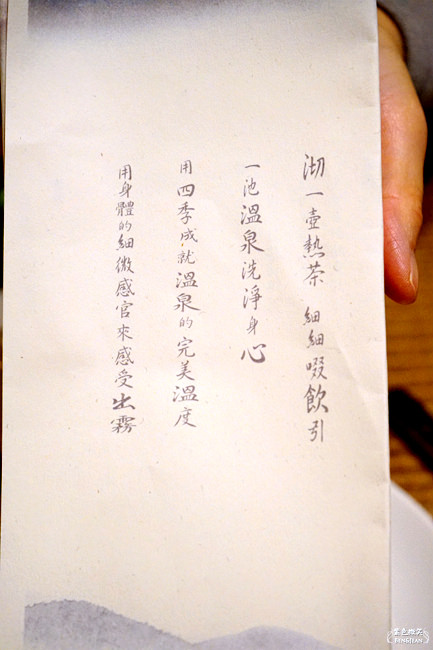 沏一壺熱茶 細細啜飲引
一池溫泉洗淨身心
用四季成就溫泉的完美溫度
用身體的細微感官來感受出霧
紫色微笑
BENGTIAN